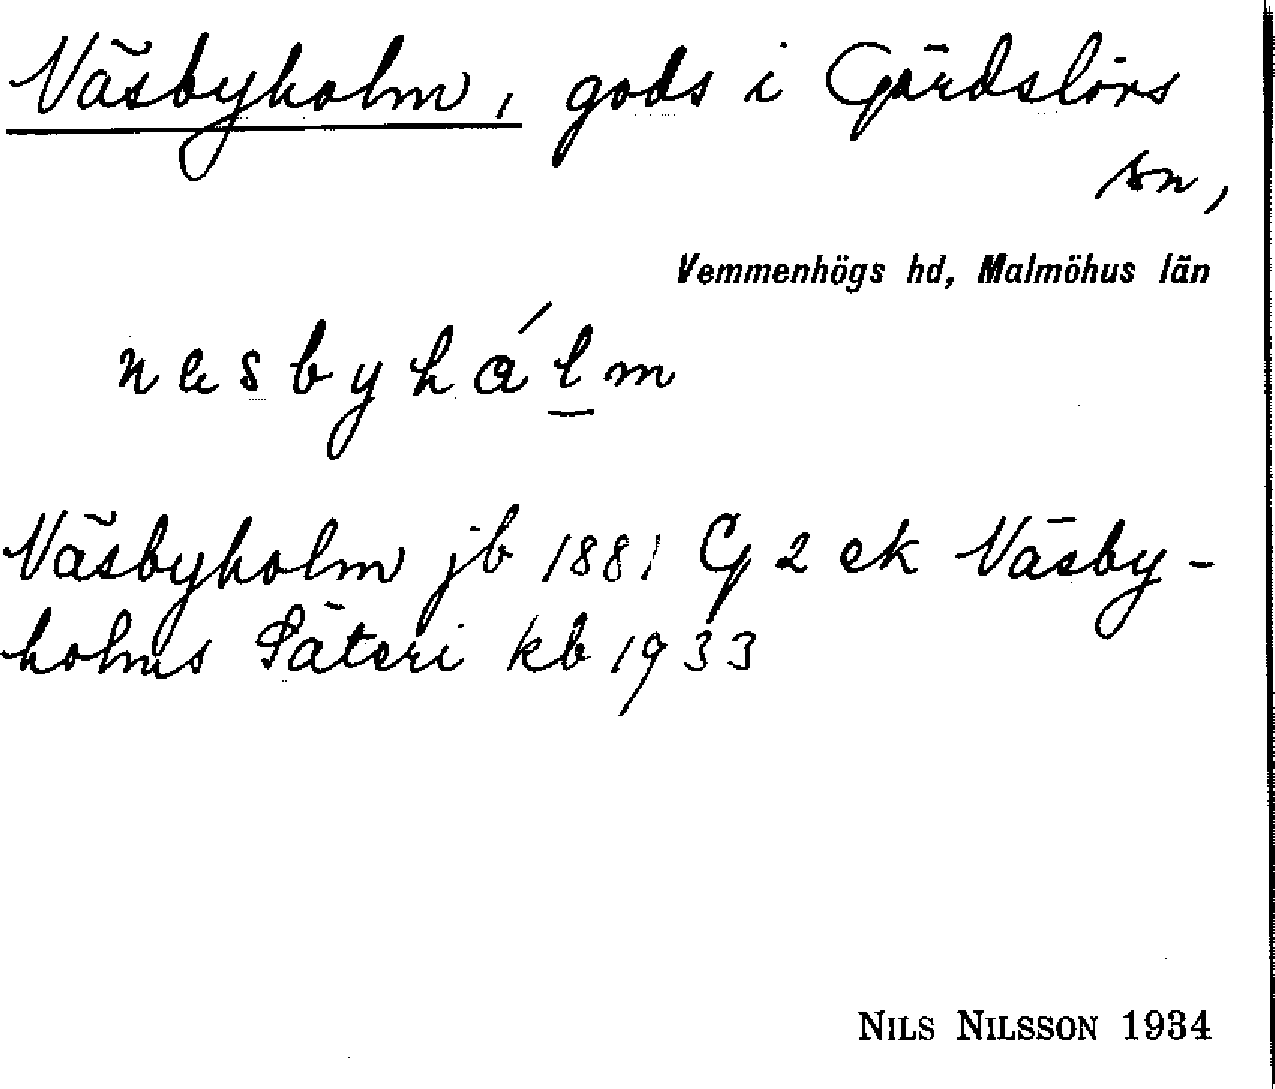 Näsbyholm, gods i Gärdslövs
sn,
Vemmenhögs hd, Malmöhus län
næsbyhálm
Näsbyholm jb 1881 G 2 ek Näsby-
holms Säteri kb 1933
NILS NILSSON 1934